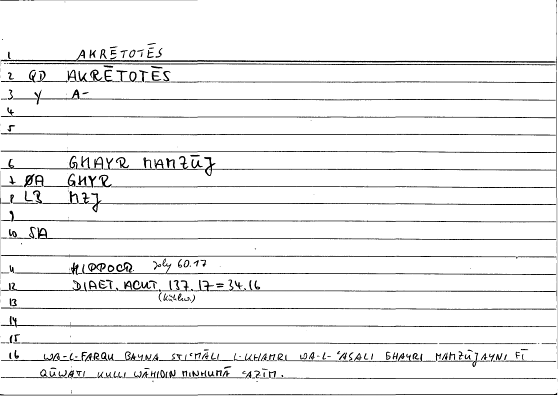 1 AKRĒTOTĒS
2 QD AKRĒTOTĒS
3 Y A-
4
5
6 GHAYR MAMZŪJ
7 ØA GHYR
8 LB MZJ
9
10 SA
11 HIPPOCR. Joly 60.17
12 DIAET. ACUT. 137.17 = 34.16
13 (Kühlew.)
14
15
16 WA-L-FARQU BAYNA STIʿMĀLI L-KHAMRI WA-L-ʿASALI GHAYRI MAMZŪJAYNI FĪ
QŪWATI KULLI WĀḤIDIN MINHUMĀ ʿAẒĪM.